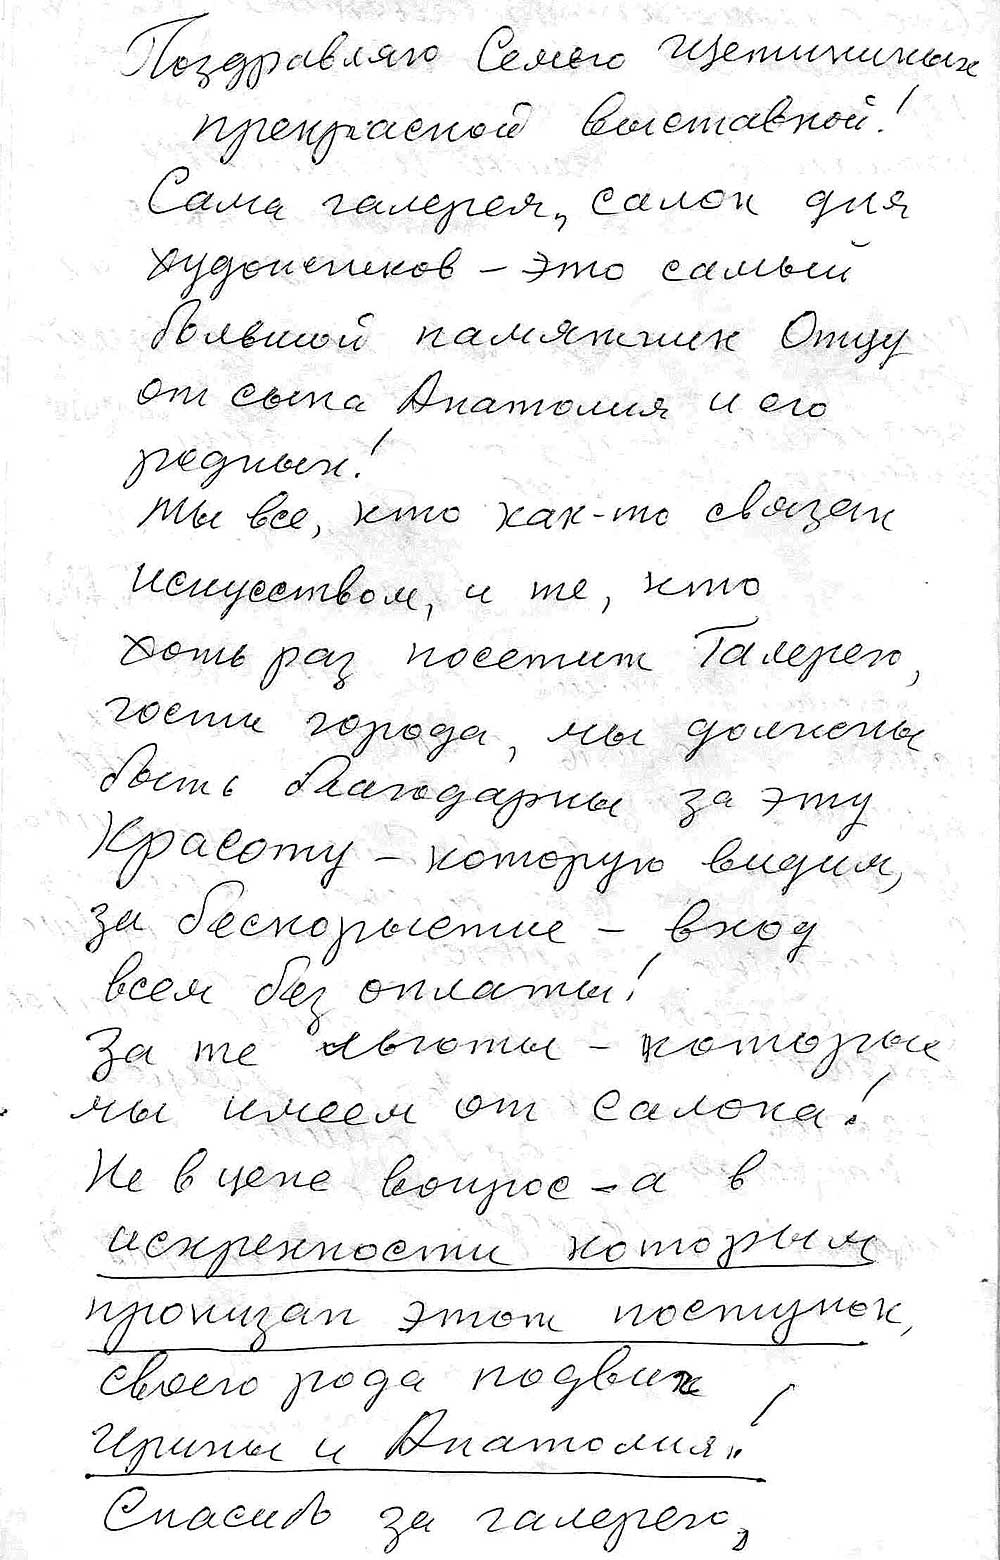 Поздравляю Семью Щетининых
прекрасной выставкой!
Сама галерея, салон для
художников – это самый
большой памятник Отцу
от сына Анатолия и его
родных!
Мы все, кто как-то связан
искусством, и те, кто
хоть раз посетит Галерею,
гости города, мы должны
быть благодарны за эту
Красоту – которую видим,
за бескорыстие – вход
всем без оплаты!
За те льготы – которые
мы имеем от салона!
Не в цене вопрос – а в
искренности которым
пронизан этот поступок,
своего рода подвиг
Ирины и Анатолия!
Спасибо за галерею,